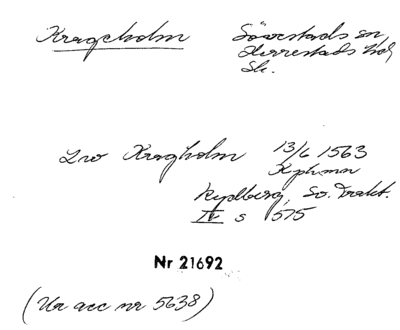 Krageholm Sövestads sn,
Herrestads hd,
Sk.
Lvo Kragholm 13/6 1563
Kphmn
Rydberg, Sv. Trakt.
IV s 575
Nr 21692
(Ur acc nr 5638)